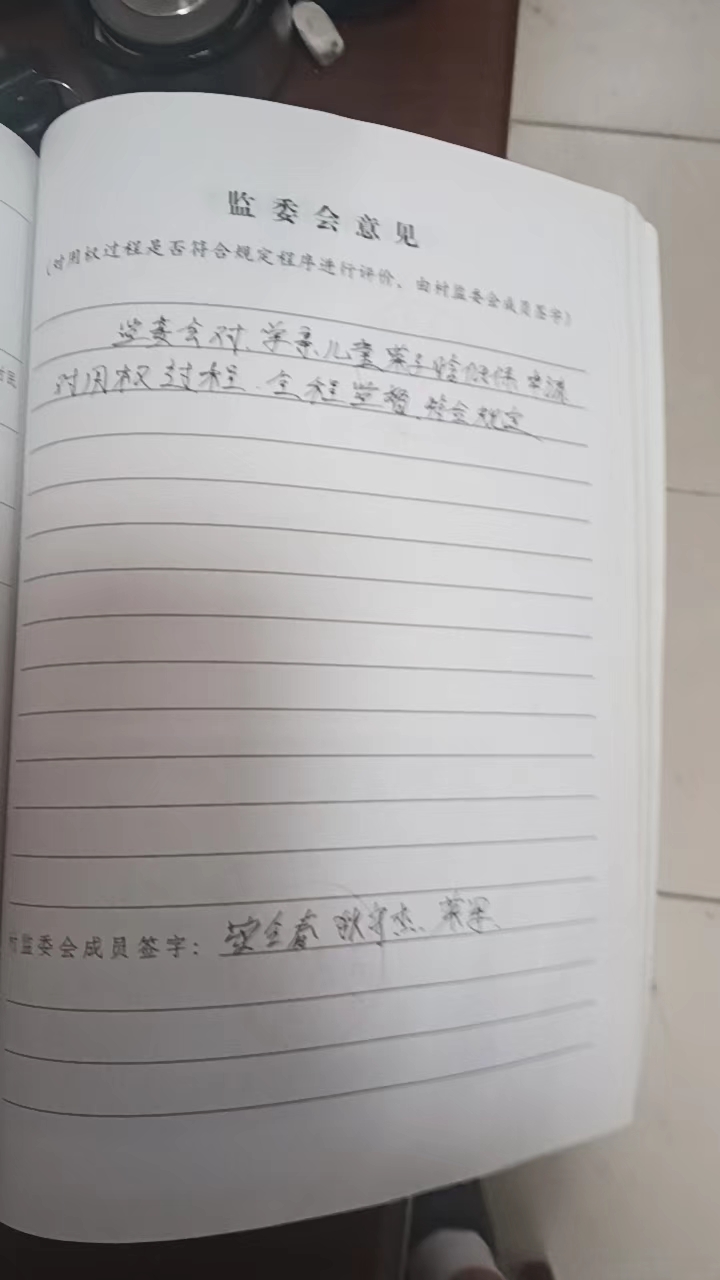 监委会意见
（对用权过程是否符合规定程序进行评价，由村监委会成员签字）
监委会对、学系儿童荣子晗低保
对用权过程、全程监督、符合规定
村监委会成员签字：全春 守杰、荣